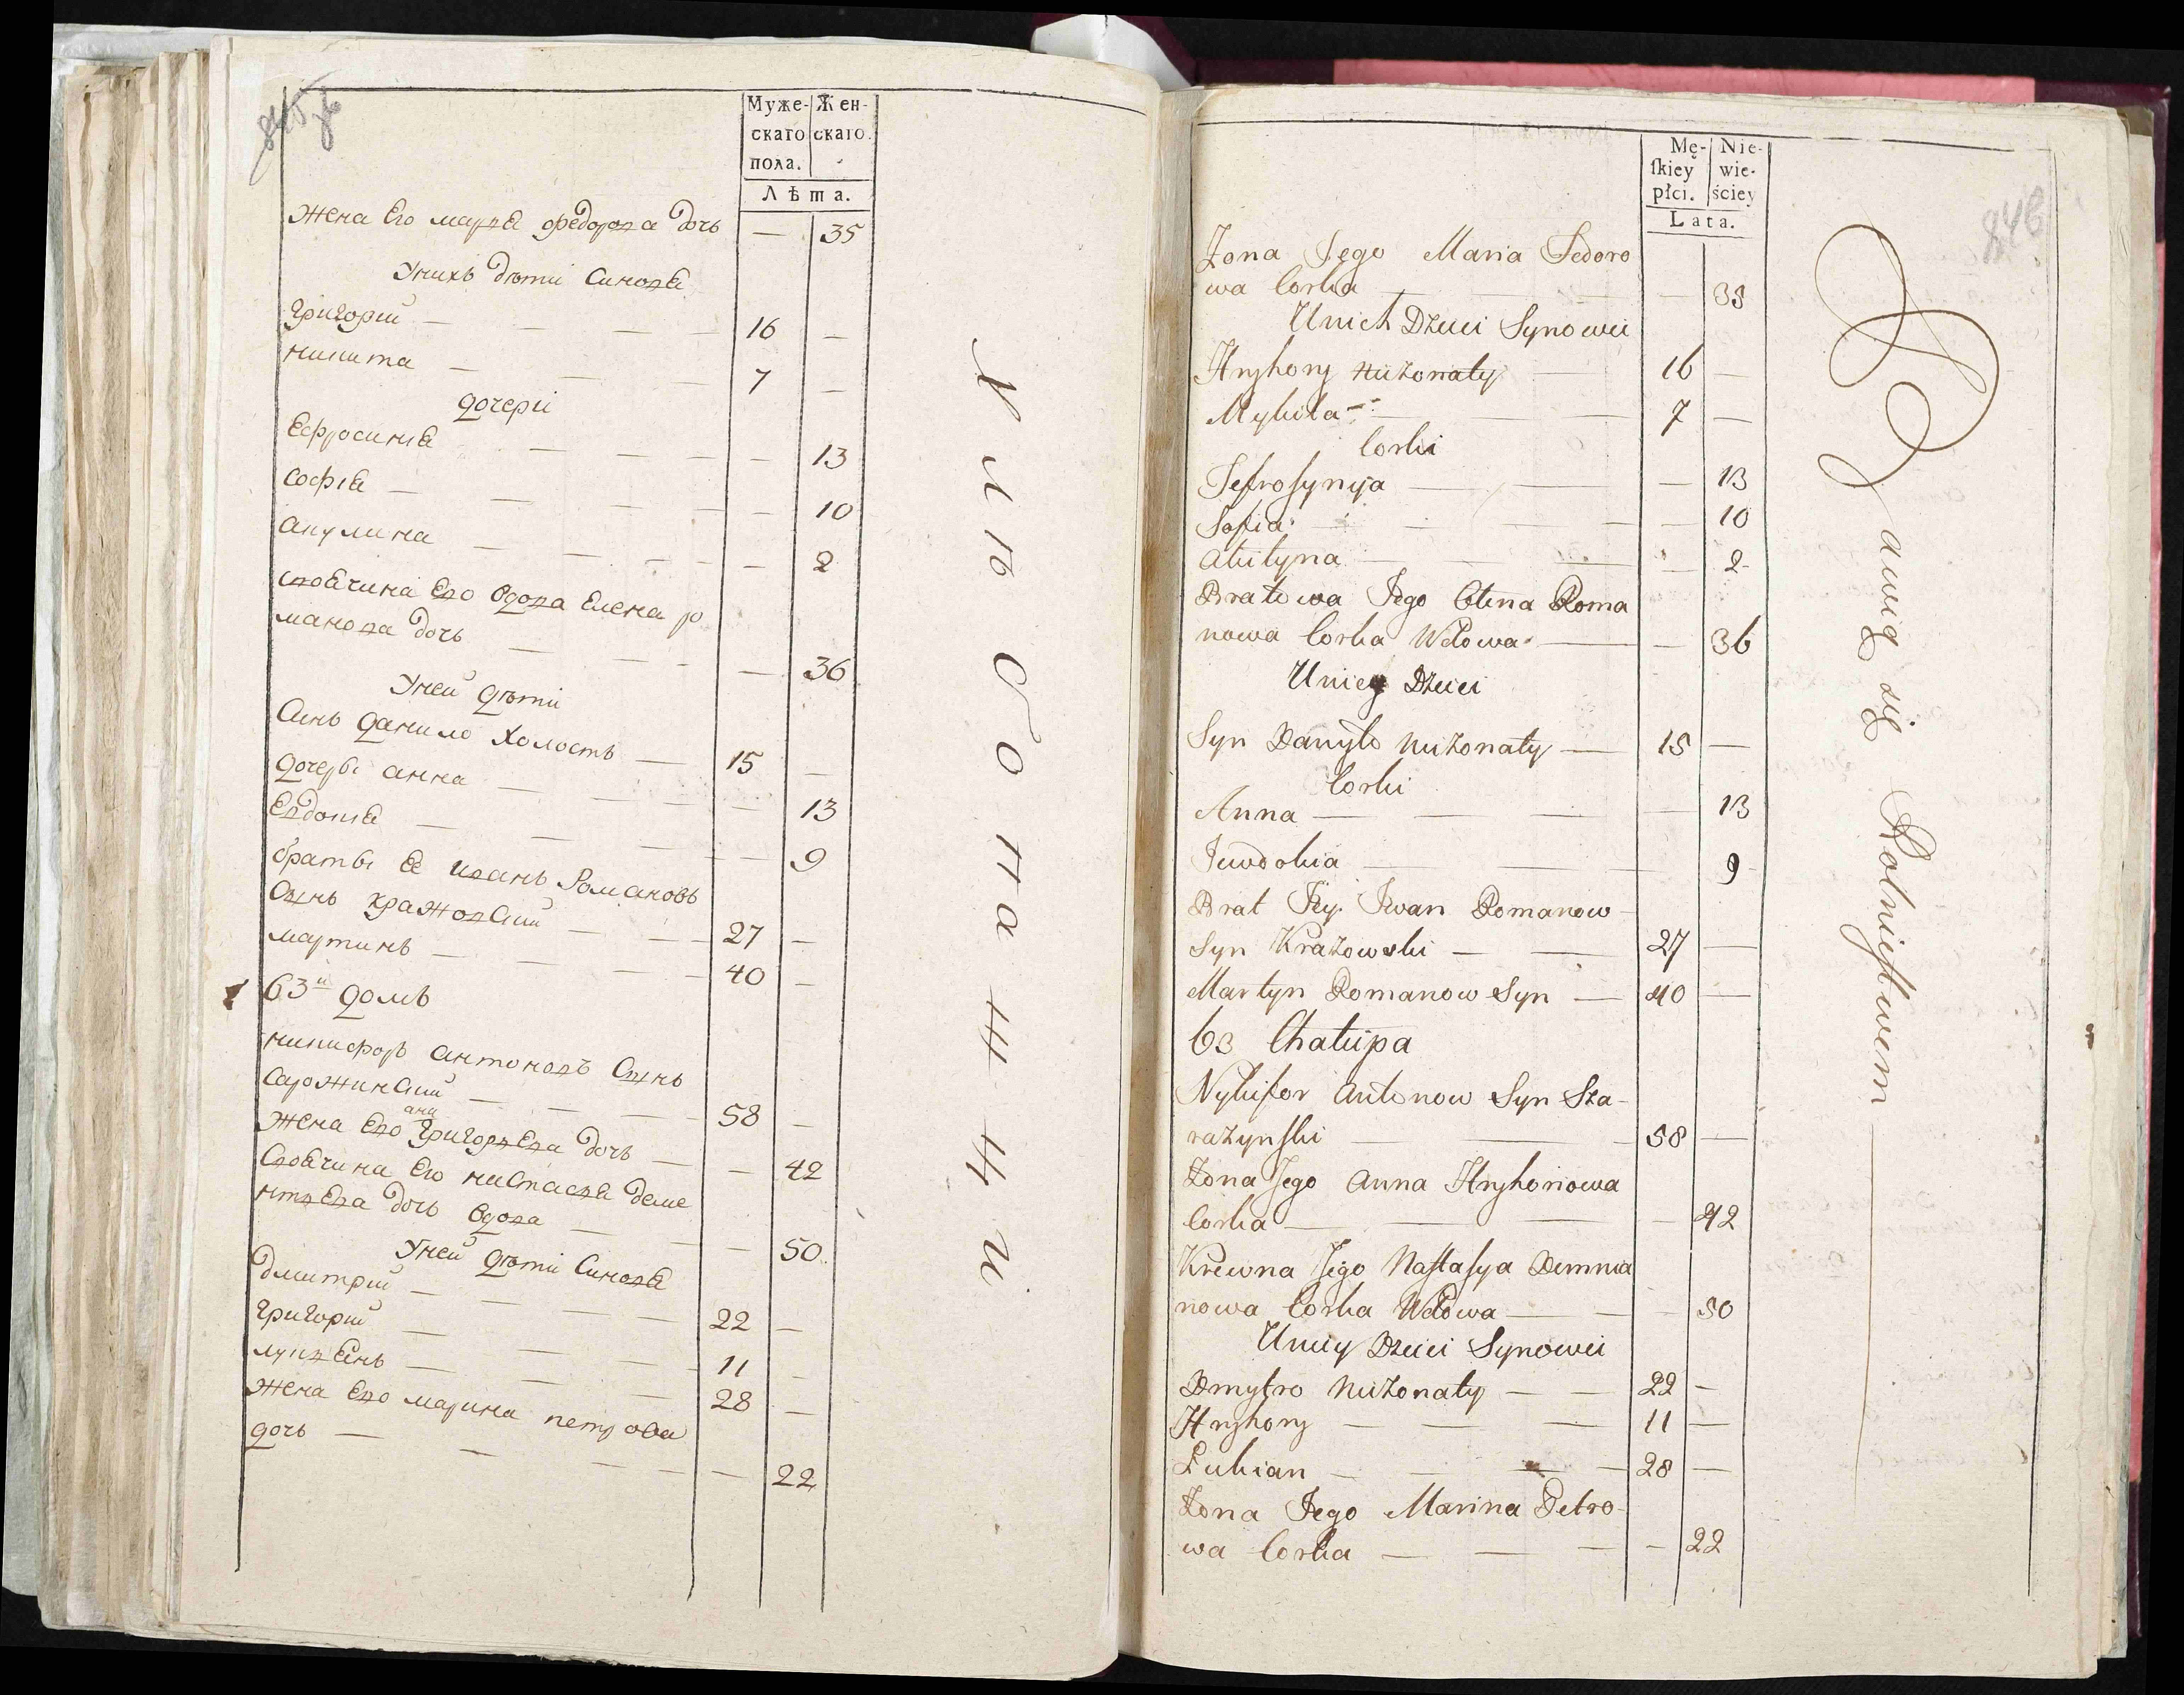 845 об
Муже- Жен-
скаго скаго.
пола.
Лѣта.
жена Его марва федорова дочь — 35
Унихъ дѣти Синовя
григорий — 16 —
никита — 7 —
дочери
Ефросинія — 13
софія — 10
акулина — 2
своячина Его вдова Елена ро
манова дочь — 36
Уней дѣти
Синъ данило холостъ — 15 —
дочеры анна — 13
Евдокія — 9
братъ Ея иванъ Романовъ
Сынъ кражовский — 27 —
мартинъ — 40 —
63й домъ
никифоръ антоновъ Сынъ
сарожинский — 58 —
анн
жена Его григорвева дочь — 42
Своячина Его настасвя деме
нтвева дочь вдова — 50
Уней дѣти Синовя
дмитрий — 22 —
григорий — 11 —
луквянъ — 28 —
жена Его марина петрова
дочь — 22
Хлѣбопашци
846
Mę- Nie-
skiey wie-
płci. ściey
Lata.
Żona Jego Maria Fedoro
wa Corka — 35
Unich Dzieci Synowei
Hryhory nieżonaty — 16 —
Mykita — 7 —
Corki
Jefrosynija — 13
Sofia — 10
Akilyna — 2
Bratowa Jego Olena Roma
nowa Corka Wdowa — 36
Uniey Dzieci
Syn Danyło nieżonaty — 15 —
Corki
Anna — 13
Juwdokia — 9
Brat Jey Iwan Romanow
Syn Krażowski — 27 —
Martyn Romanow Syn — 40 —
63 Chałupa
Nykifor Antonow Syn Sza-
rażynski — 58 —
Żona Jego Anna Hryhoriowa
Corka — 42
Krewna Jego Nastasya Demnia
nowa Corka Wdowa — 50
Uniey Dzieci Synowei
Dmytro nieżonaty — 22 —
Hryhory — 11 —
Łukian — 28 —
Żona Jego Marina Petro-
wa Corka — 22
Bawią się Rolnictwem